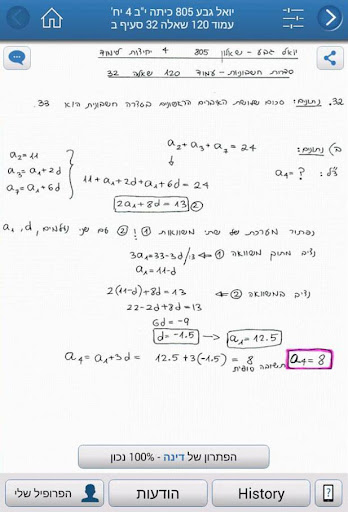 יואל גבע 805 כיתה י"ב 4 יח'
עמוד 120 שאלה 32 סעיף ב
יואל גבע - שאלון 805 4 יחידות לימוד
סדרות חשבוניות - עמוד 120 שאלה 32
32. נתונים: סכום שלושת האיברים הראשונים בסדרה חשבונית הוא 33.
ב) נתונים: a₂+a₃+a₇=24
צ"ל: a₄=?
a₂=11
a₃=a₁+2d
a₇=a₁+6d
11+a₁+2d+a₁+6d=24
2a₁+8d=13 ②
נפתור מערכת של שתי משוואות ① ② עם שני נעלמים, a₁,d
נציב מתוך משוואה ① ⇐ 3a₁=33-3d /:3
a₁=11-d
נציב במשוואה ② ⇐ 2(11-d)+8d=13
22-2d+8d=13
6d=-9
d=-1.5 → a₁=12.5
a₄=a₁+3d= 12.5+3(-1.5)=8 a₄=8
תשובה סופית
הפתרון של דינה - 100% נכון
הפרופיל שלי
הודעות
History